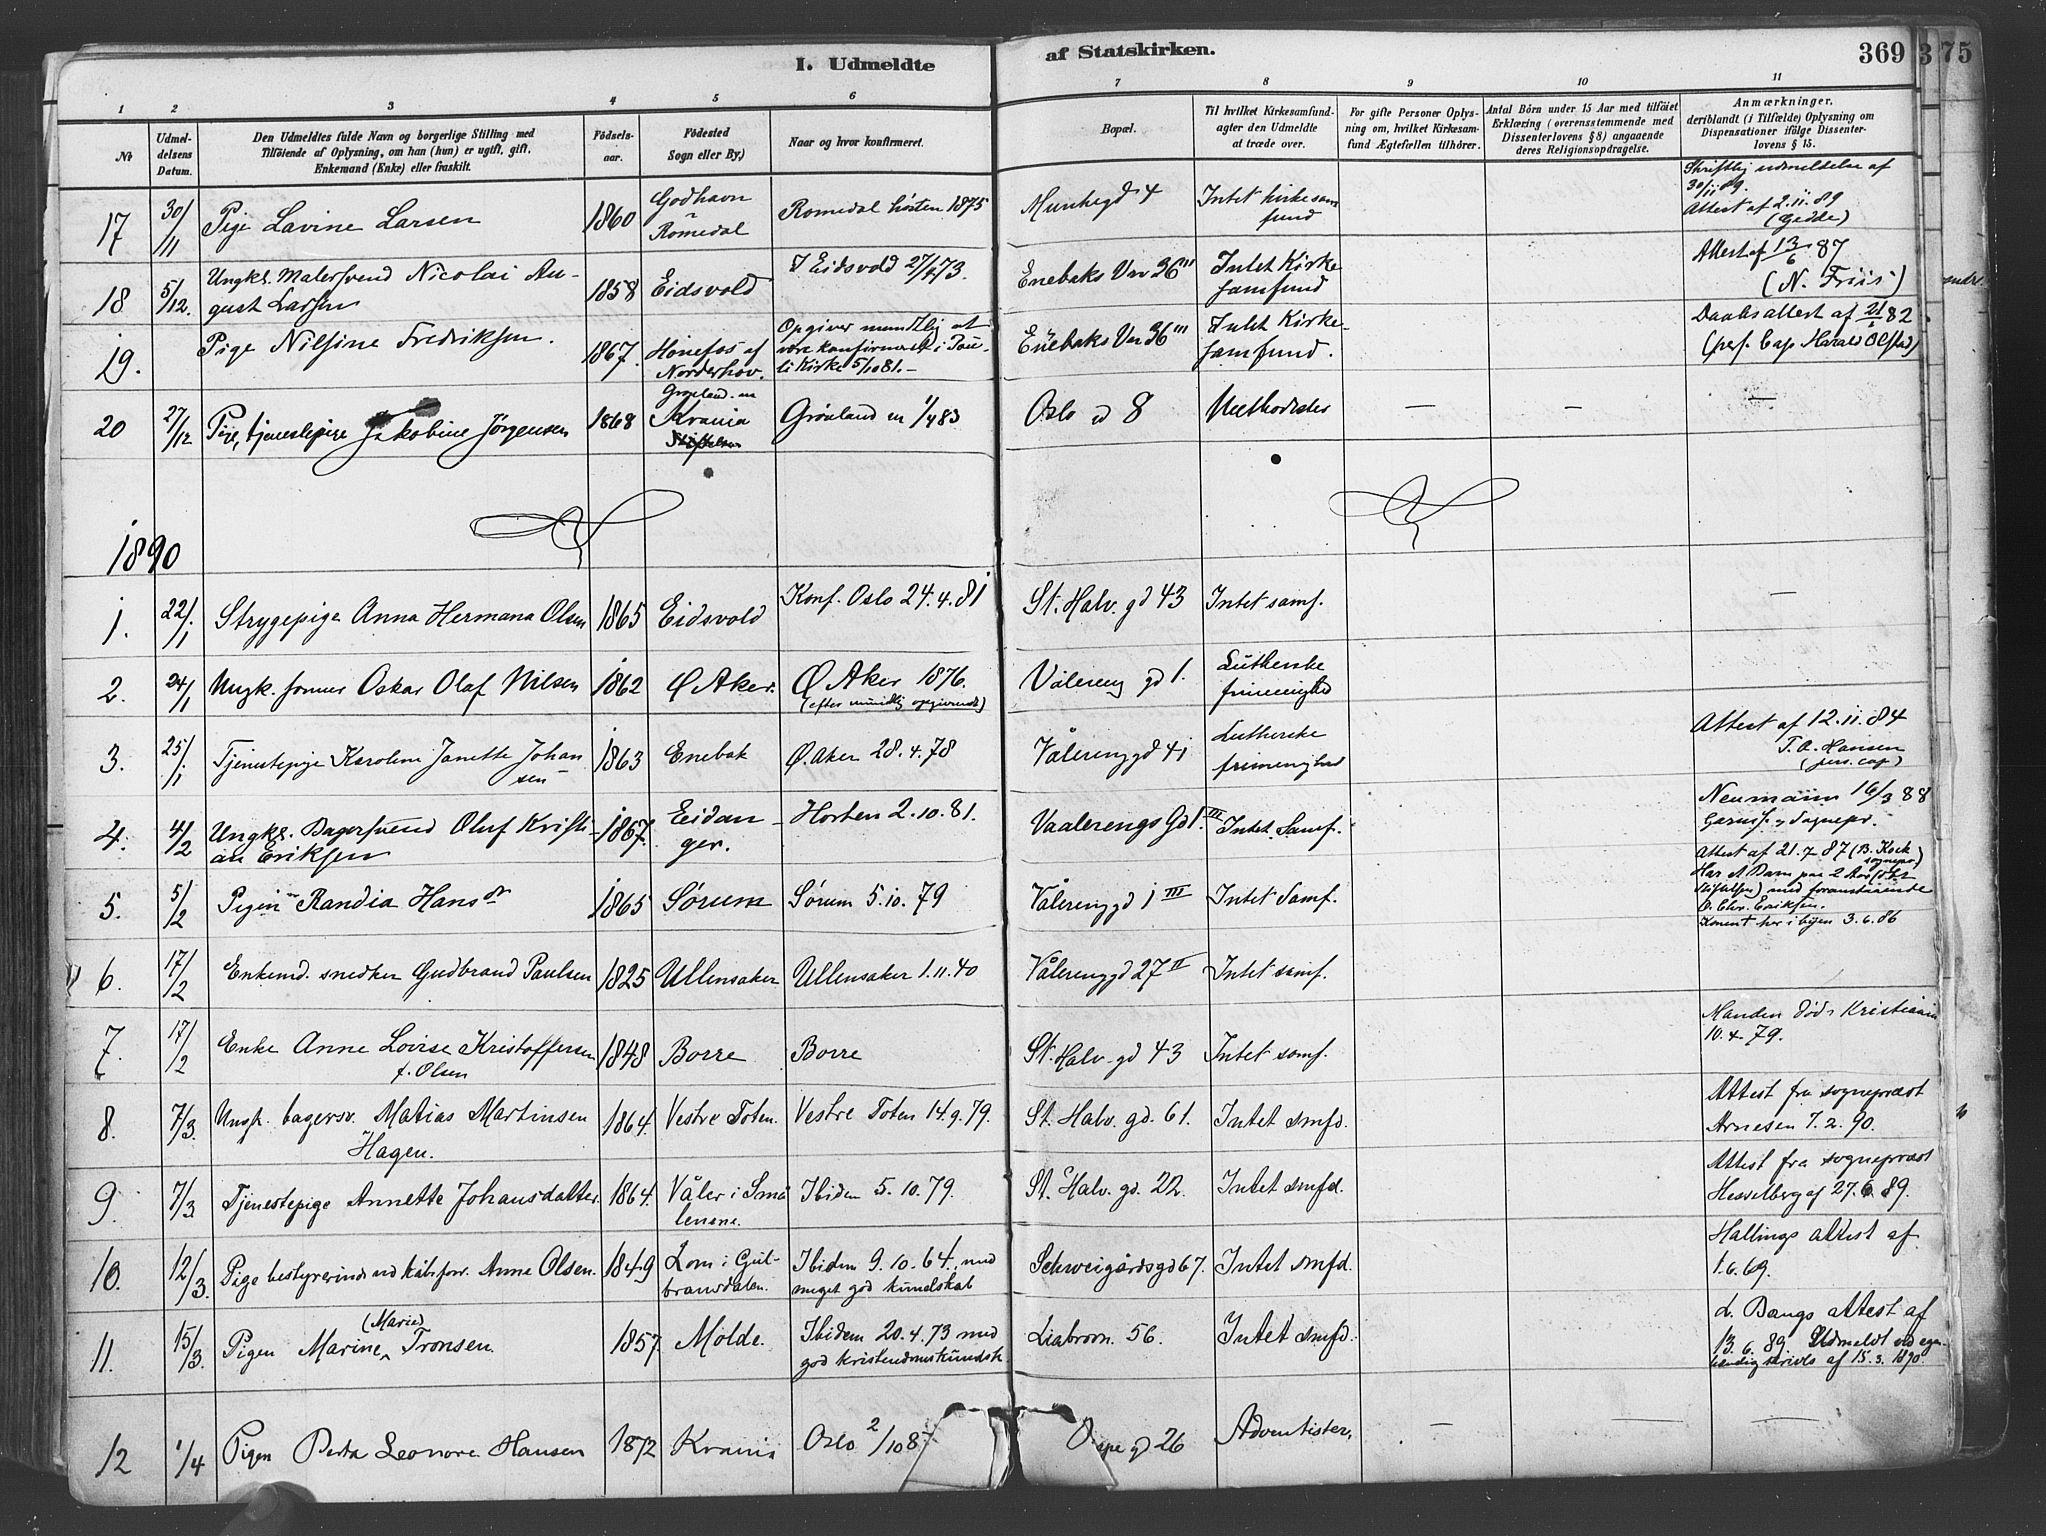 I. Udmeldte af Statskirken. 369 375
1 2 3 4 5 6 7 8 9 10 11
No
Udmel-
delsens
Datum.
Den Udmeldtes fulde Navn og borgerlige Stilling med
Tilføiende af Oplysning, om han (hun) er ugift, gift,
Enkemand (Enke) eller fraskilt.
Fødsels-
aar.
Fødested
Sogn eller By,)
Naar og hvor konfirmeret.
Bopæl.
Til hvilket Kirkesamfund-
agter den Udmeldte
at træde over.
For gifte Personer Oplys-
ning om, hvilket Kirkesam-
fund Ægtefællen tilhører.
Antal Børn under 15 Aar med tilføiet
Erklæring (overensstemmende med
Dissenterlovens § 8) angaaende
deres Religionsopdragelse.
Anmærkninger,
deriblandt (i Tilfælde) Oplysning om
Dispensationer ifølge Dissenter-
lovens § 15.
17 30/11 Pige Lavine Larsen 1860 Godhavn
Romedal
Romedal høsten 1875 Munkegd 4 Intet kirkesam
fund
Skriftlig udmeldelse af
30/11 89.
Attest af 2.11.89
(Gedde)
18 5/12. Ungkl. Malersvend Nicolai Au-
gust Larsen
1858 Eidsvold I Eidsvold 27/4 73. Enebaks Vei 36 III Intet Kirke
samfund
Attest af 13/6 87
(N. Friis)
19. Pige Nilsine Fredriksen. 1867. Hønefos af
Norderhov.
Opgiver mundtlig at
være konfirmeret i Pau-
li Kirke 5/10 81. —
Enebaks Vei 36 III Intet Kirke-
samfund.
Daabsattest af 21/1 82
(pers. Cap Harald Olstad)
20 27/12 Pige, tjenestepige Jakobine Jørgensen 1868 Grønland. m
Krania
Stiftelsen
Grønland m 1/4 83 Oslo d 8 Methodister — — —
1890
1. 22/1 Strygepige Anna Hermana Olsen 1865 Eidsvold Konf. Oslo 24.4.81 St. Halv. gd 43 Intet samf. —
2. 24/1 Ungk. Oskar Olaf Nilsen 1862 Ø Aker. Ø Aker 1876.
(efter mundtlig opgivende)
Vålereng gd 1. Lutherske
frimenighed
3. 25/1 Tjenestepige Karoline Janette Johan
sen
1863 Enebak Ø. Aker 28.4.78 Vålerenggd 41 Lutherske
frimenighed
Attest af 12.11.84
T. A. Hansen
(pers. cap)
4. 4/2 Ungkl. Bagersvend Oluf Kristi-
an Eriksen
1867. Eidan
ger.
Horten 2.10.81. Vaalerengs Gd 1. III Intet Samf.
Neumann 16/3 88
Sognepr.
5. 5/2 Pigen Randia Hansdr 1865 Sørum Sørum 5.10.79 Vålerenggd 1 III Intet Samf.
Attest af 21.7.87 (B. Kock
sognepr.)
Har et Barn paa 2 Aar
med foranstaaende
O. Chr. Eriksen.
her i byen 3.6.86
6. 17/2 Enkemd. snedker Gudbrand Paulsen 1825 Ullensaker Ullensaker 1.11.40 Vålerenggd 27 II Intet samf.
7. 17/2 Enke Anne Lovise Kristoffersen
f. Olsen
1848 Borre Borre St. Halv. gd 43 Intet samf.
Manden død i Kristiania
10.4.79.
8. 7/3. Ungk. bagersv. Matias Martinsen
Hagen.
1864. Vestre Toten. Vestre Toten 14.9.79. St. Halv. gd. 61. Intet smfd.
Attest fra sogneprest
Arnesen 7.2.90.
9. 7/3 Tjenestepige Annette Johansdatter. 1864. Våler i Små
lenene.
Ibidem 5.10.79. St. Halv. gd. 22. Intet smfd.
Attest fra sogneprest
Hesselberg af 27.6.89.
10. 12/3. Pige bestyrerinde ved Anne Olsen. 1849 Lom i Gul-
bransdalen.
Ibidem 9.10.64., med
meget god kundskab
Schweigårdsgd 67. Intet smfd.
Hallings attest af
1.6.69.
11. 15/3. Pigen Marine (Marie) Tronsen. 1857 Molde. Ibidem 20.4.73 med
god kristendomskundsk
Liabrovn. 56. Intet smfd.
d. Bangs attest af
13.6.89. Udmeldt ved egen-
hændig skrivls af 15.3.1890
12 1/4 Pigen Petra Leonore Hansen 1872 Krania Oslo 2/10 87 gd 26 Adventister. — — —